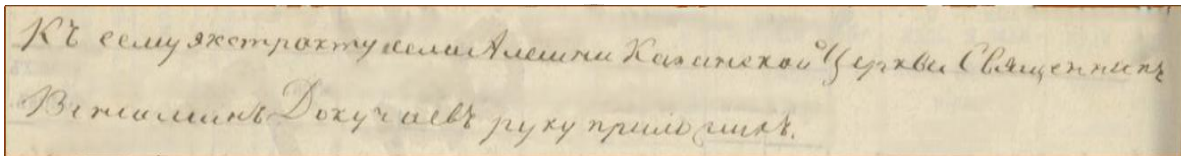 Къ сему экстракту села Алешни Казанской Церкви Священникъ
Вениаминъ Докучаевъ руку приложилъ.